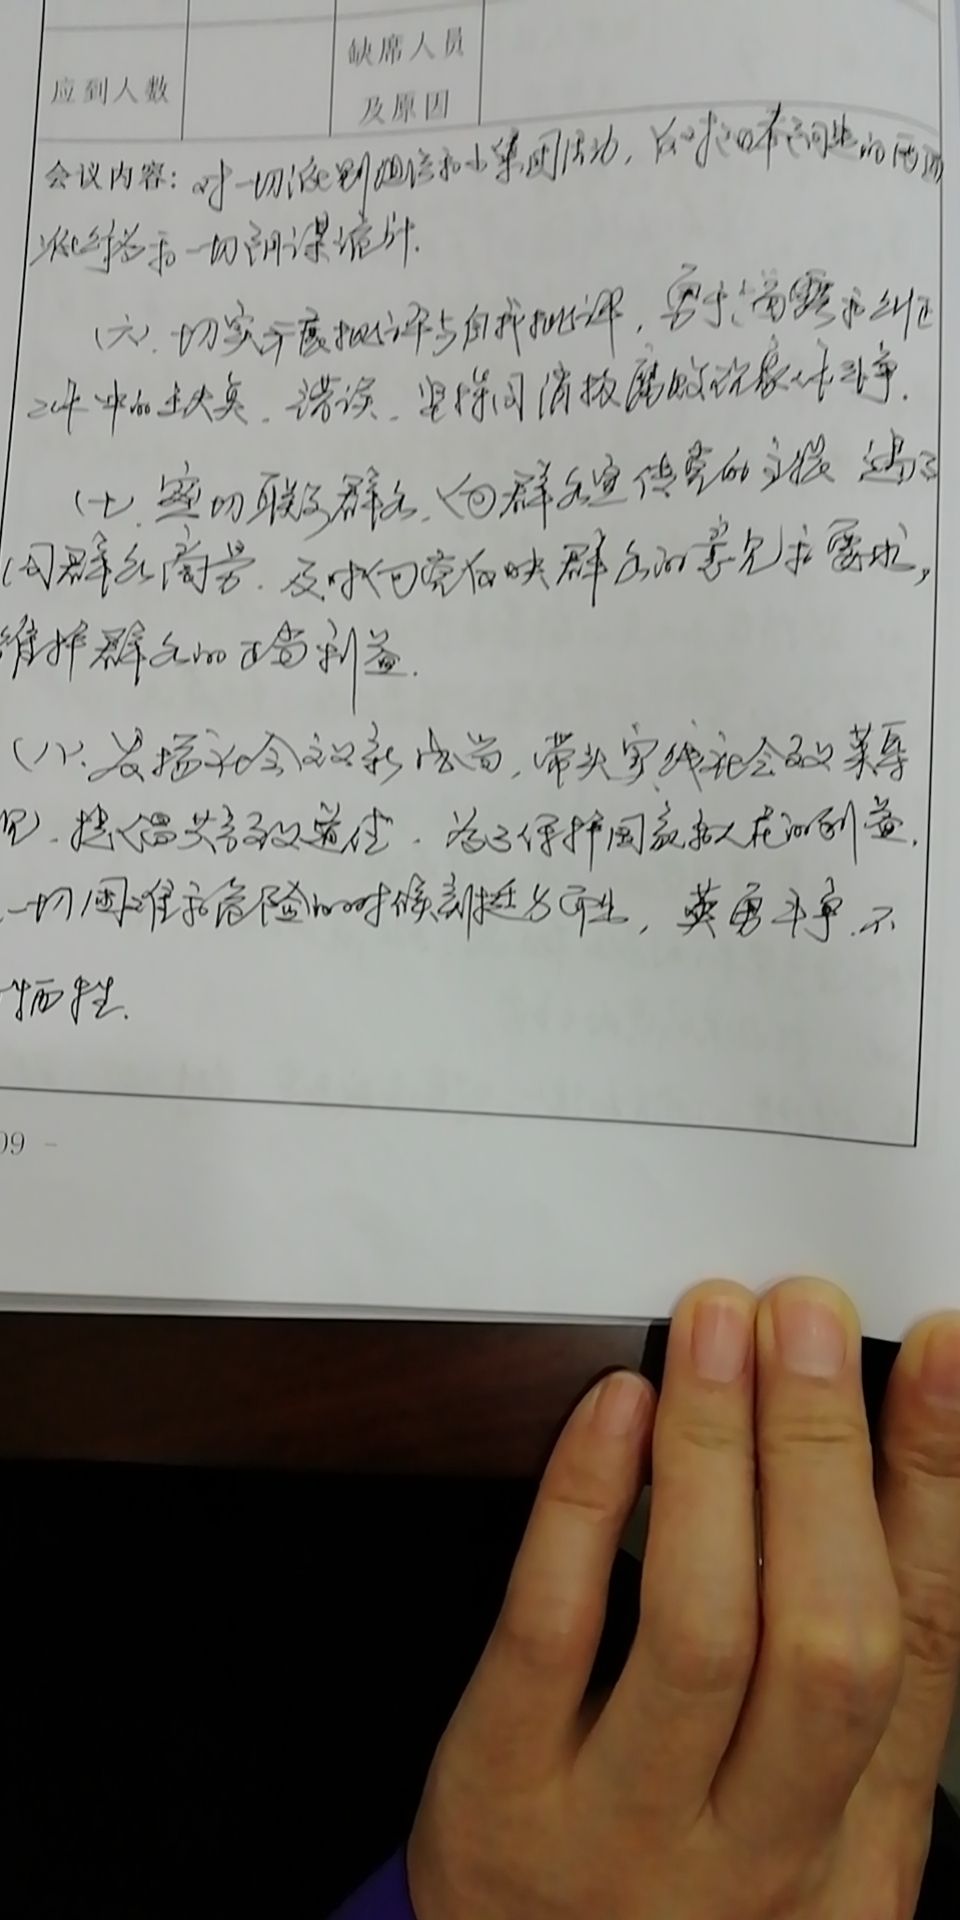 缺席人员
应到人数
及原因
会议内容：对一切派别组织和小集团活动，反对阳奉阴违的两面
派行为和一切阴谋诡计.
(六).切实开展批评与自我批评，勇于揭露和纠正
工作中的缺点、错误、坚持同消极腐败现象作斗争.
(七).密切联系群众、向群众宣传党的主张 遇事
同群众商量.及时向党反映群众的意见和要求，
维护群众的正当利益.
(八).发扬社会主义新风尚，带头实践社会主义荣辱
观.提倡共产主义道德.为了保护国家和人民的利益.
一切困难和危险的时候挺身而出，英勇斗争.不
牺牲.
09 -